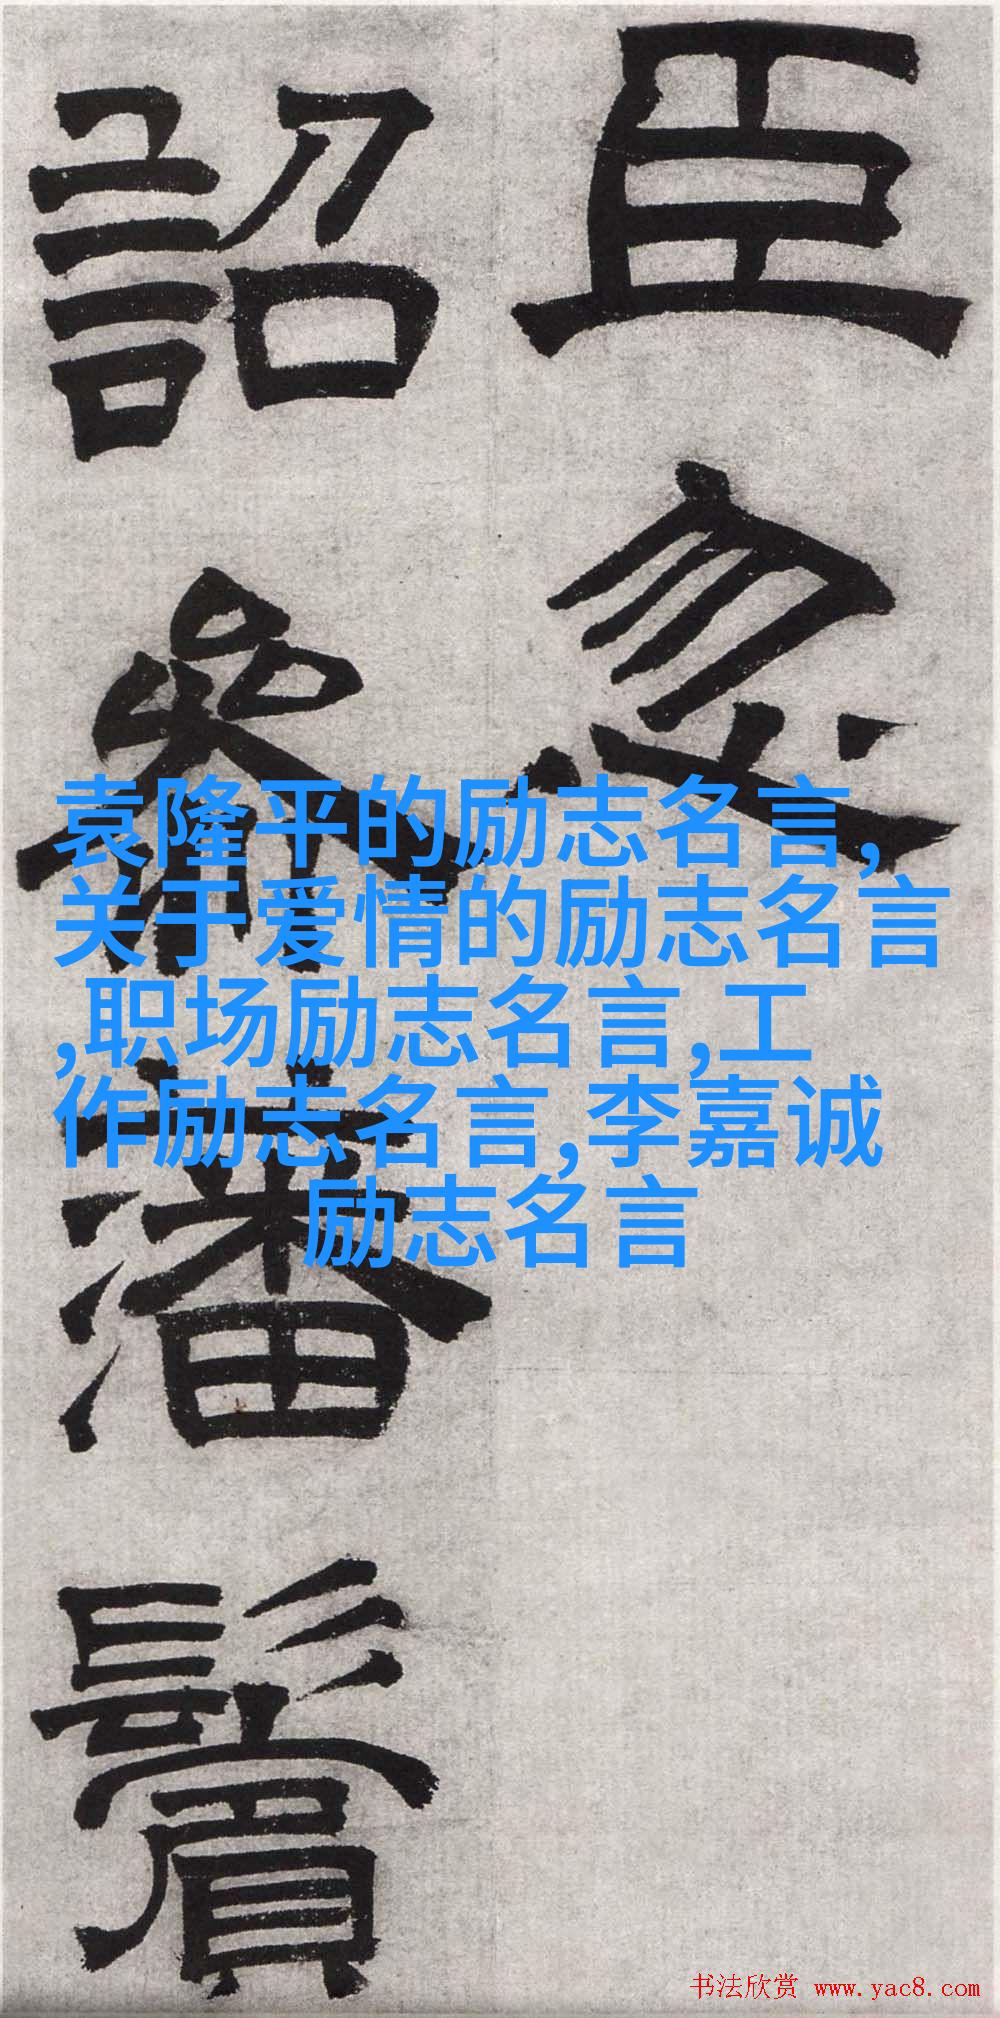 臣忽
詔參潘鬢
袁隆平的励志名言,
关于爱情的励志名言
,职场励志名言,工
作励志名言,李嘉诚
励志名言
书法欣赏 www.yac8.com